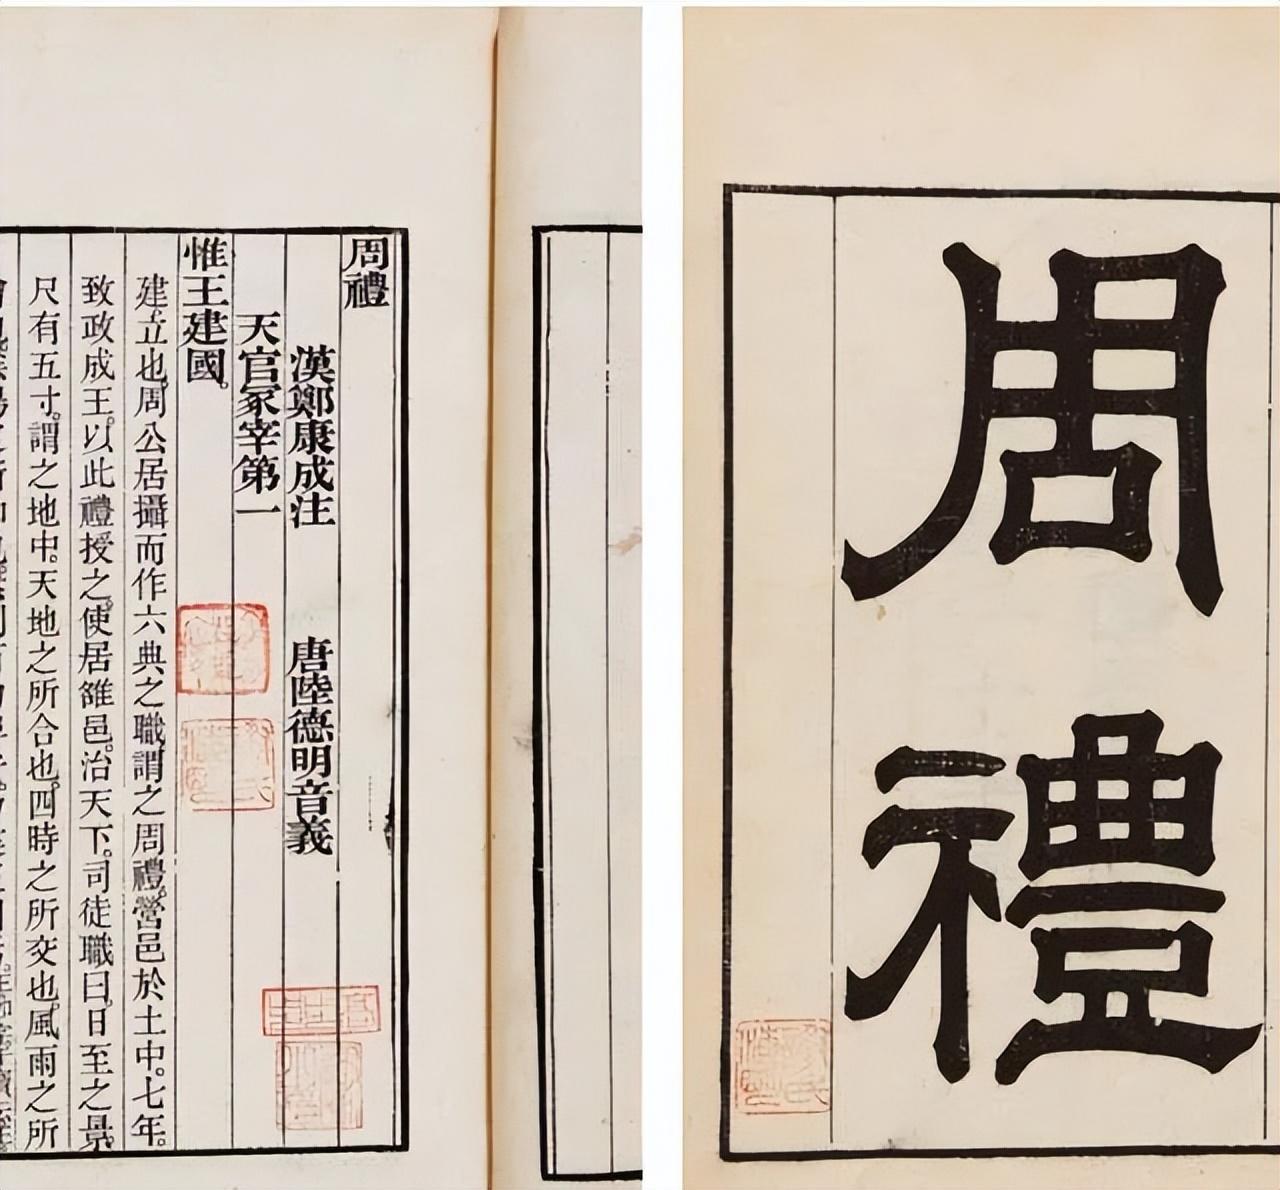 周禮
漢鄭康成注 唐陸德明音義
天官冢宰第一
惟王建國。
建立也。周公居攝而作六典之職。謂之周禮。營邑於土中。七年。
致政成王。以此禮授之。使居雒邑。治天下。司徒職曰。日至之景。
尺有五寸。謂之地中。天地之所合也。四時之所交也。風雨之所
周禮